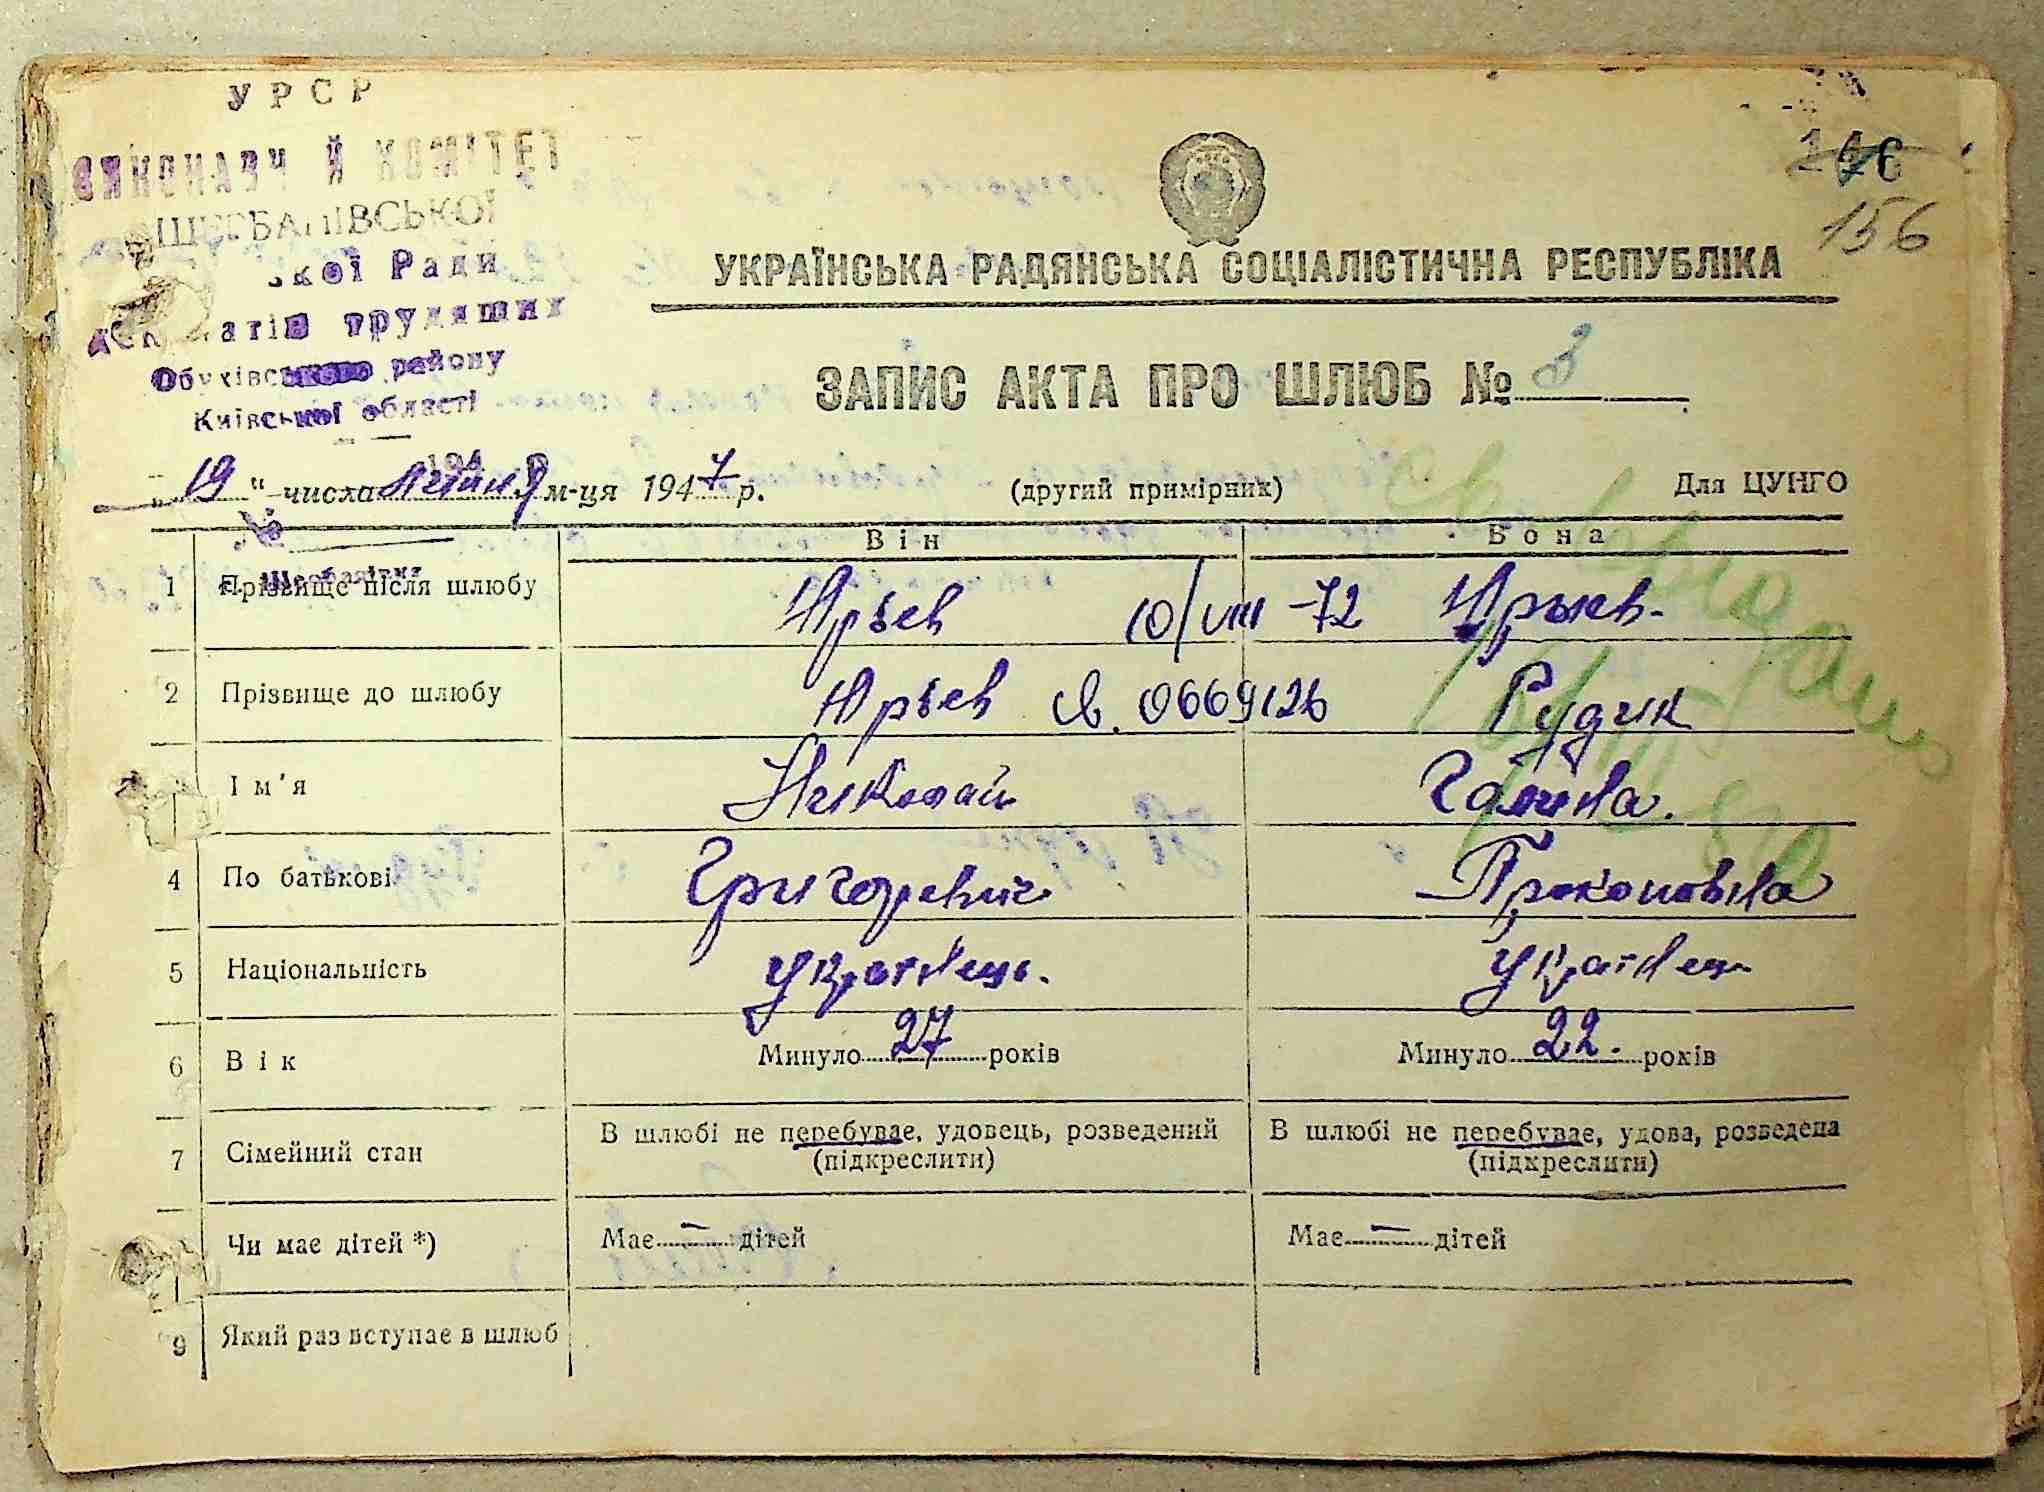 УРСР
ВИКОНАВЧ Й КОМІТЕТ
ЩЕРБАНІВСЬКОЇ
ської Ради
депутатів трудящих
Обухівського району
Київської області
194 р
№
с. Щербанівка
116
156
УКРАЇНСЬКА РАДЯНСЬКА СОЦІАЛІСТИЧНА РЕСПУБЛІКА
ЗАПИС АКТА ПРО ШЛЮБ № 3
„ 19 " числа м-ця 1947 р. (другий примірник) Для ЦУНГО
Він Вона
1 Прізвище після шлюбу Юрьев 10/VIII -72 Юрьев.
2 Прізвище до шлюбу Юрьев св. 0669126 Рудик
Ім'я Николай Галина.
4 По батькові Григоревич Прокоповна
5 Національність українець. українец
6 Вік Минуло 27 років Минуло 22. років
7 Сімейний стан В шлюбі не перебуває, удовець, розведений В шлюбі не перебуває, удова, розведена
(підкреслити) (підкреслити)
Чи має дітей *) Має — дітей Має — дітей
9 Який раз вступає в шлюб